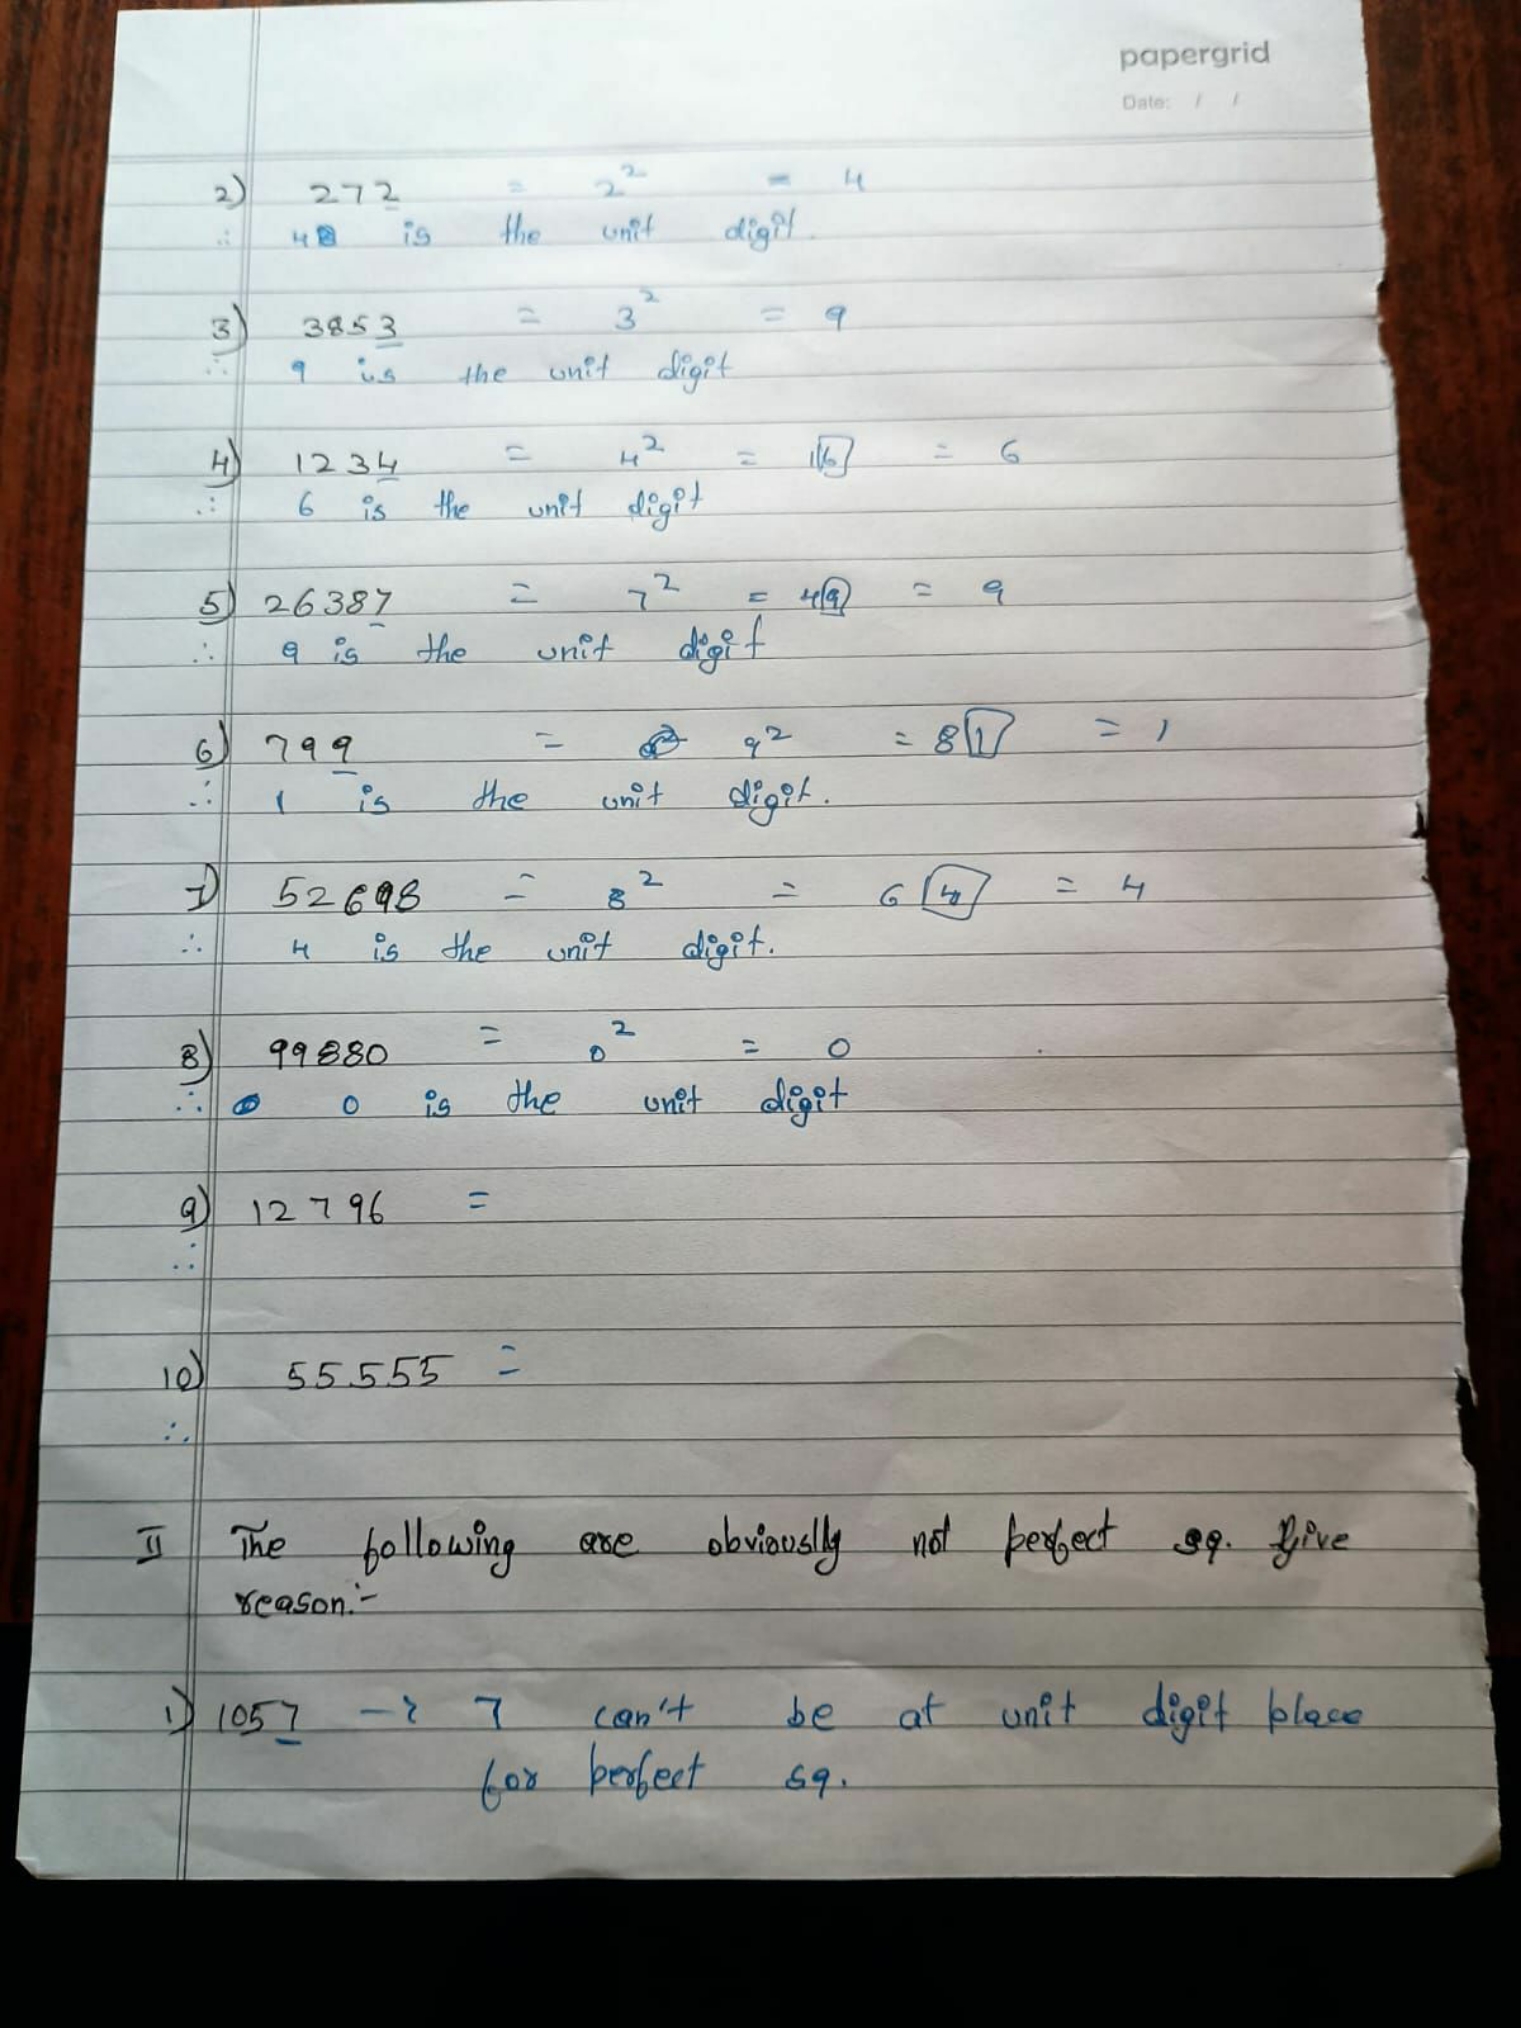 papergrid
Date: / /
2) 272 = 2² = 4
∴ 4 is the unit digit.
3) 3853 = 3² = 9
∴ 9 is the unit digit
4) 1234 = 4² = 16 = 6
∴ 6 is the unit digit
5) 26387 = 7² = 49 = 9
∴ 9 is the unit digit
6) 799 = 9² = 81 = 1
∴ 1 is the unit digit.
7) 52698 = 8² = 64 = 4
∴ 4 is the unit digit.
8) 99880 = 0² = 0
∴ 0 is the unit digit
9) 12796 =
∴
10) 55555 =
∴
II The following are obviouslly not perfect sq. Give
reason:-
1) 1057 → 7 can't be at unit digit place
for perfect sq.